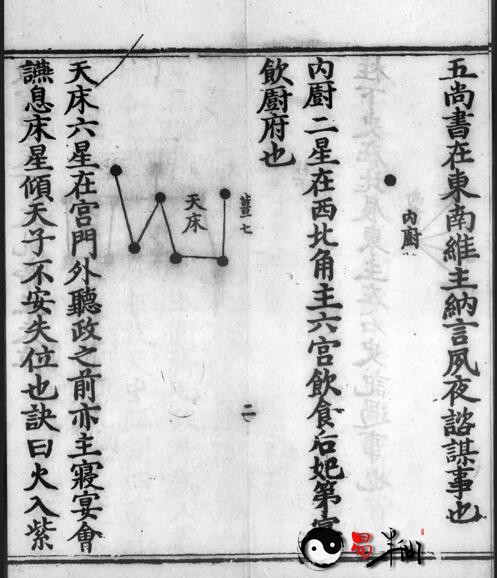 五尚書在東南維主納言夙夜諮謀事也
內廚
內廚二星在西北角主六宮飲食后妃第宴
飲廚府也
薑七
二
天床
天床六星在宮門外聽政之前亦主寢宴會
讌息床星傾天子不安失位也訣曰火入紫
易